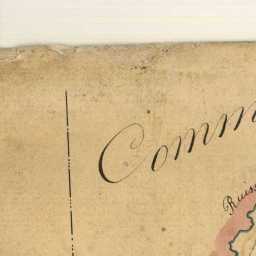 Comm
Ruiss